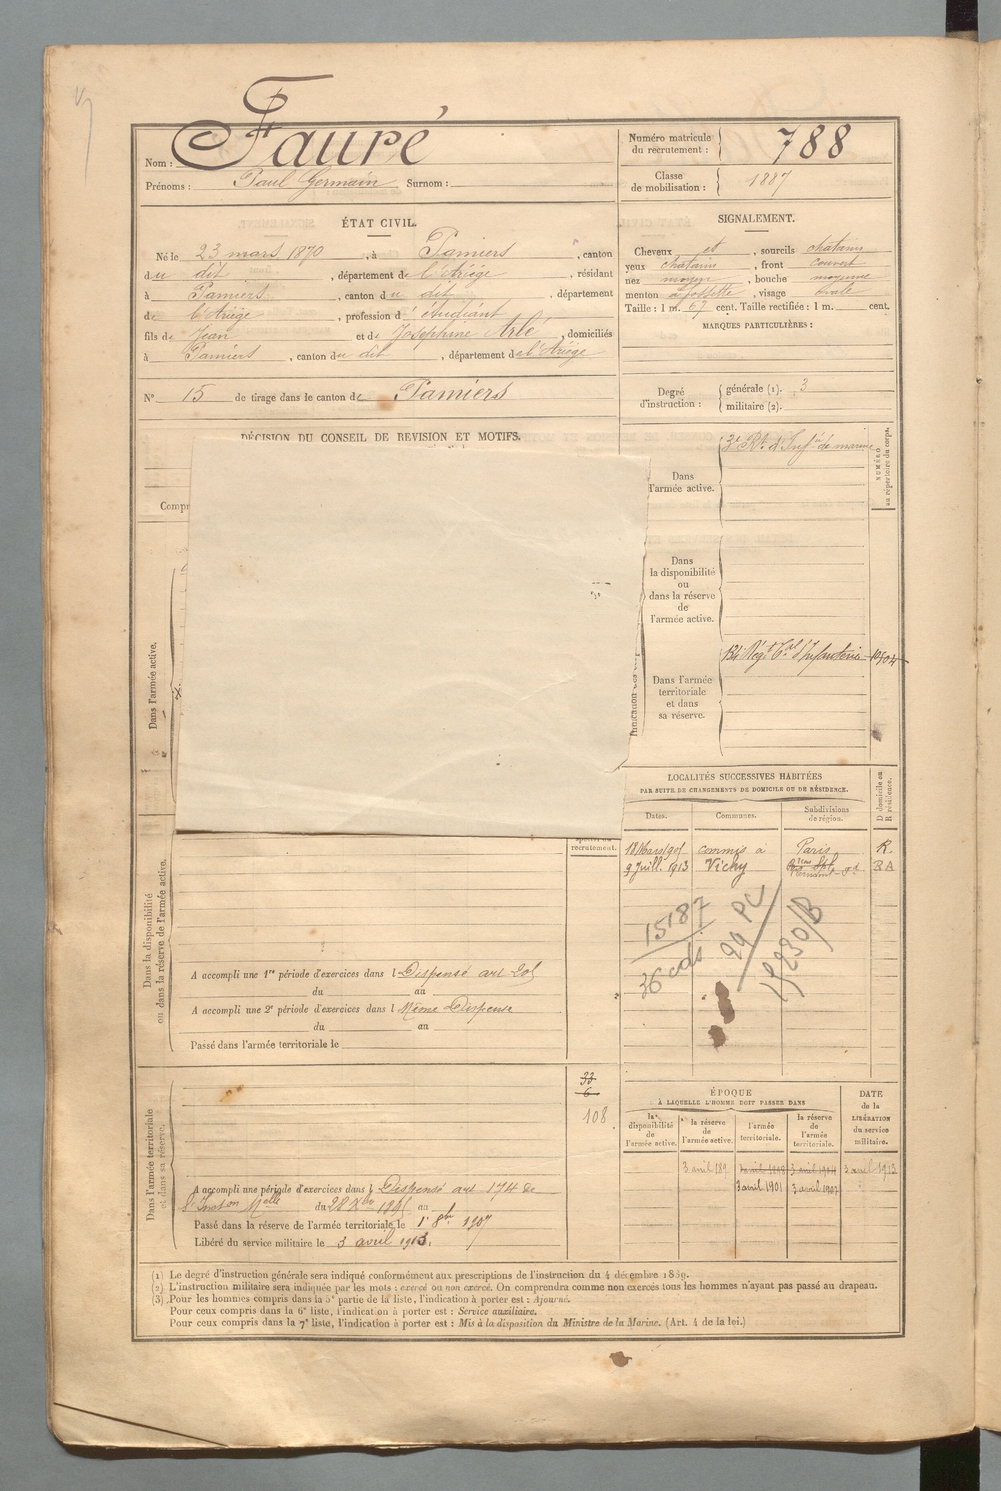 Fauré
Nom :
Prénoms : Paul Germain Surnom :
Numéro matricule du recrutement : 788
Classe de mobilisation : 1887
ÉTAT CIVIL.
Né le 23 mars 1870, à Pamiers, canton
du dit, département de l'Ariège, résidant
à Pamiers, canton du dit, département
de l'Ariège, profession d'étudiant
fils de Jean et de Joséphine Arlé, domiciliés
à Pamiers, canton du dit, département de l'Ariège
N° 15 de tirage dans le canton de Pamiers
SIGNALEMENT.
Cheveux et, sourcils chatains
yeux chatains, front couvert
nez moyen, bouche moyenne
menton à fossette, visage ovale
Taille : 1 m. 67 cent. Taille rectifiée : 1 m. cent.
MARQUES PARTICULIÈRES :
Degré d'instruction : générale (1). 3
militaire (2).
DÉCISION DU CONSEIL DE REVISION ET MOTIFS.
Compr
NUMÉRO au répertoire du corps.
Dans l'armée active. 3e Rt. d'Infie de marine
Dans la disponibilité ou dans la réserve de l'armée active.
Dans l'armée territoriale et dans sa réserve. 134 Régt Tal d'Infanterie 10504
Dans l'armée active.
LOCALITÉS SUCCESSIVES HABITÉES
PAR SUITE DE CHANGEMENTS DE DOMICILE OU DE RÉSIDENCE.
Dates. Communes. Subdivisions de région. D domicile ou R résidence.
18 Mars 1901 commis à Paris R.
9 Juill. 1913 Vichy RA
15187
36 cds
99 PC
15230/B
recrutement.
Dans la disponibilité ou dans la réserve de l'armée active.
A accompli une 1re période d'exercices dans l Dispensé art 201
du au
A accompli une 2e période d'exercices dans l Même Dispense
du au
Passé dans l'armée territoriale le
33
6
108
Dans l'armée territoriale et dans sa réserve.
A accompli une période d'exercices dans l Dispensé art 174 de
du 28 Xbre au
Passé dans la réserve de l'armée territoriale, le 1er 8bre 1907
Libéré du service militaire le 3 avril 1913.
ÉPOQUE
À LAQUELLE L'HOMME DOIT PASSER DANS
DATE de la LIBÉRATION du service militaire.
la disponibilité de l'armée active. la réserve de l'armée active. l'armée territoriale. la réserve de l'armée territoriale.
3 avril 189 3 avril 1898 3 avril 1904 3 avril 1913
3 avril 1901 3 avril 1907
(1) Le degré d'instruction générale sera indiqué conformément aux prescriptions de l'instruction du 4 décembre 1889.
(2) L'instruction militaire sera indiquée par les mots : exercé ou non exercé. On comprendra comme non exercés tous les hommes n'ayant pas passé au drapeau.
(3) Pour les hommes compris dans la 5e partie de la liste, l'indication à porter est : Ajourné.
Pour ceux compris dans la 6e liste, l'indication à porter est : Service auxiliaire.
Pour ceux compris dans la 7e liste, l'indication à porter est : Mis à la disposition du Ministre de la Marine. (Art. 4 de la loi.)